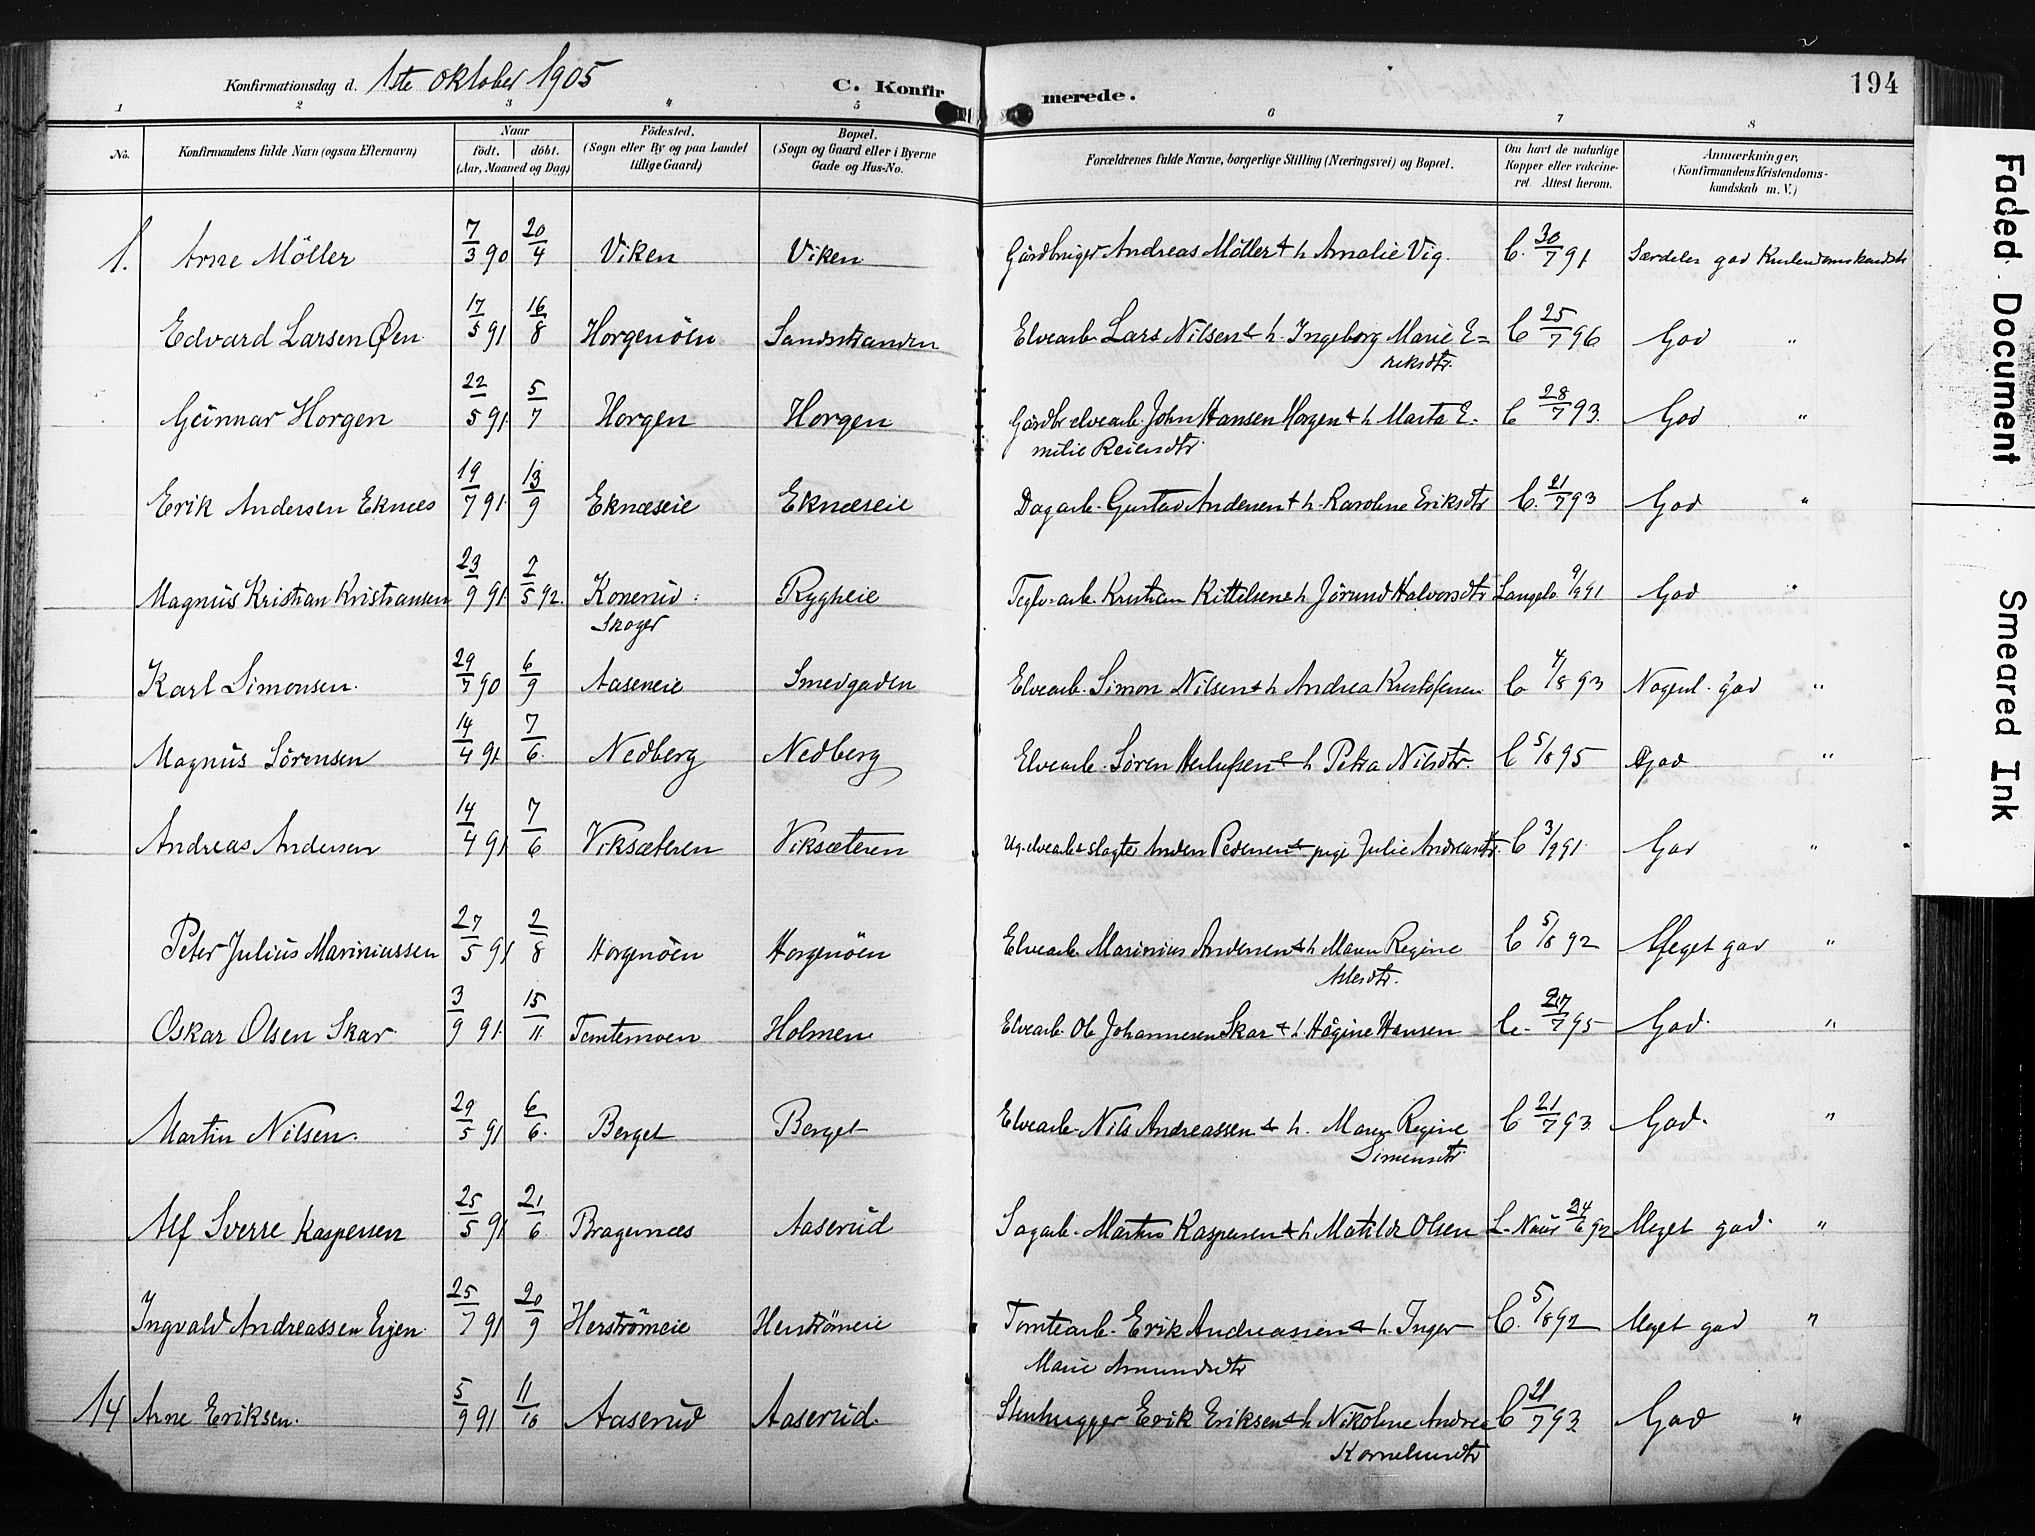 Konfirmationsdag d. 1ste oktober 1905
C. Konfirmerede.
194
1 2 3 " 5 6 7 8
No. Konfirmandens fulde Navn (ogsaa Efternavn) Naar født, døbt. (Aar, Maaned og Dag) Fødested. (Sogn eller By og paa Landet tillige Gaard) Bopæl. (Sogn og Gaard eller i Byerne Gade og Hus-No. Forældrenes fulde Navne, borgerlige Stilling (Næringsvei) og Bopæl. Om havt de naturlige Kopper eller vakcineret. Attest herom. Anmærkninger, (Konfirmandens Kristendomskundskab m. V.)
1. Arne Möller 7/3 90 20/4 Viken Viken Gårdbruger Andreas Møller & h Amalie Vig. C. 30/7 91 Særdeles god Kristendomskundsk
Edvard Larsen Øen 17/5 91 16/8 Horgenöen Sandstranden Elvearb. Lars Nilsen & h. Ingeborg Marie E=
riksdtr. C 25/7 96 God "
Gunnar Horgen 22/5 91. 5/7 Horgen Horgen Gårdbr elvearb. John Hansen Horgen & h Marta E-
milie Reiersdtr C 28/7 93. God "
Erik Andersen Eknæs 19/7 91. 13/9 Eknæseie Eknæseie Dagarb. Gustav Andersen & h. Karoline Eriksdtr C. 21/7 93 God "
Magnus Kristian Kristiansen 23/9 91. 2/5 92. Konerud
Skoger Rygheie Teglv.arb. Kristian Kittelsen & h Jörund Halvorsdtr 9/9 91 God "
Karl Simonsen. 29/7 90 6/9 Aaseneie Smedgaden Elvearb. Simon Nilsen & h Andrea Kristofersen C 4/8 93 Nogenl. god "
Magnus Sörensen 14/4 91. 7/6. Nedberg Nedberg Elvearb. Søren Herlufsen & h Petra Nilsdtr. C 5/8 95 God "
Andreas Andersen 14/4 91 7/6 Viksæteren Viksæteren Ug. elvearb & slagter Anders Pedersen & pige Julie Andreasdtr. C 3/9 91. God "
Peter Julius Mariniussen 27/5 91 2/8 Horgenöen Horgenöen Elvearb. Marinius Andersen & h Maren Regine
C 5/8 92 Meget god "
Oskar Olsen Skar 3/9 91. 15/11 Tomtemoen Holmen Elvearb. Ole Johannesen Skar & h. Hågine Hansen C. 27/7 95 God. "
Martin Nilsen. 29/5 91 6/6. Berget Berget Elvearb. Nils Andreassen & h. Maren Regine
Simensdtr. C 21/7 93. God. "
Alf Sverre Kaspersen 25/5 91 21/6 Bragernæs Aaserud Sagarb. Martin Kaspersen & h Matilde Olsen L. Naus 24/6 92 Meget god. "
Ingvald Andreassen Eijen. 25/7 91 20/9 Herströmeie Herströmeie Tomtearb. Erik Andreassen & h. Inger
Marie Amundsdtr C. 5/8 92 Meget god "
14 Arne Eriksen. 5/9 91 11/10 Aaserud Aaserud. Stenhugger Erik Eriksen & h Nikoline Andrea
Korneliusdtr C 21/7 93. God "
Faded Document
Smeared Ink